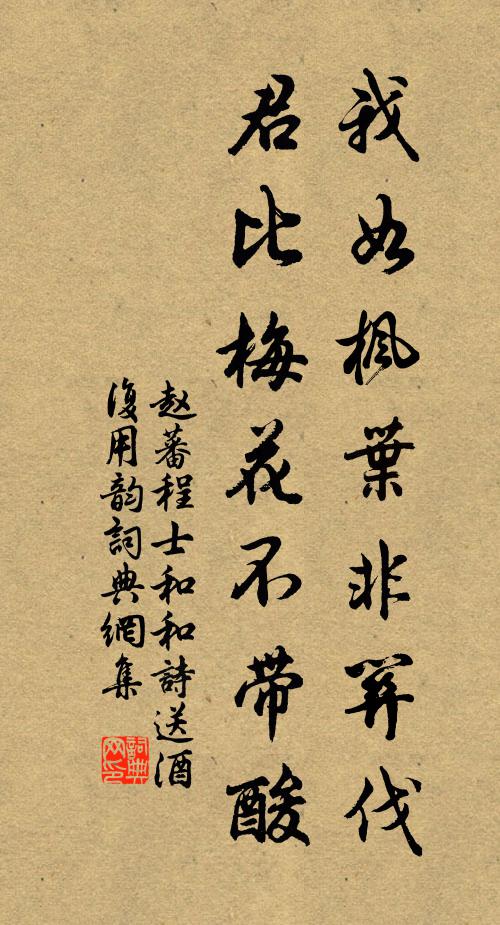 我如枫葉非伐
君比梅花不带酸
赵蕃程士和和詩送酒
復用韵詞典網集
詞典网印